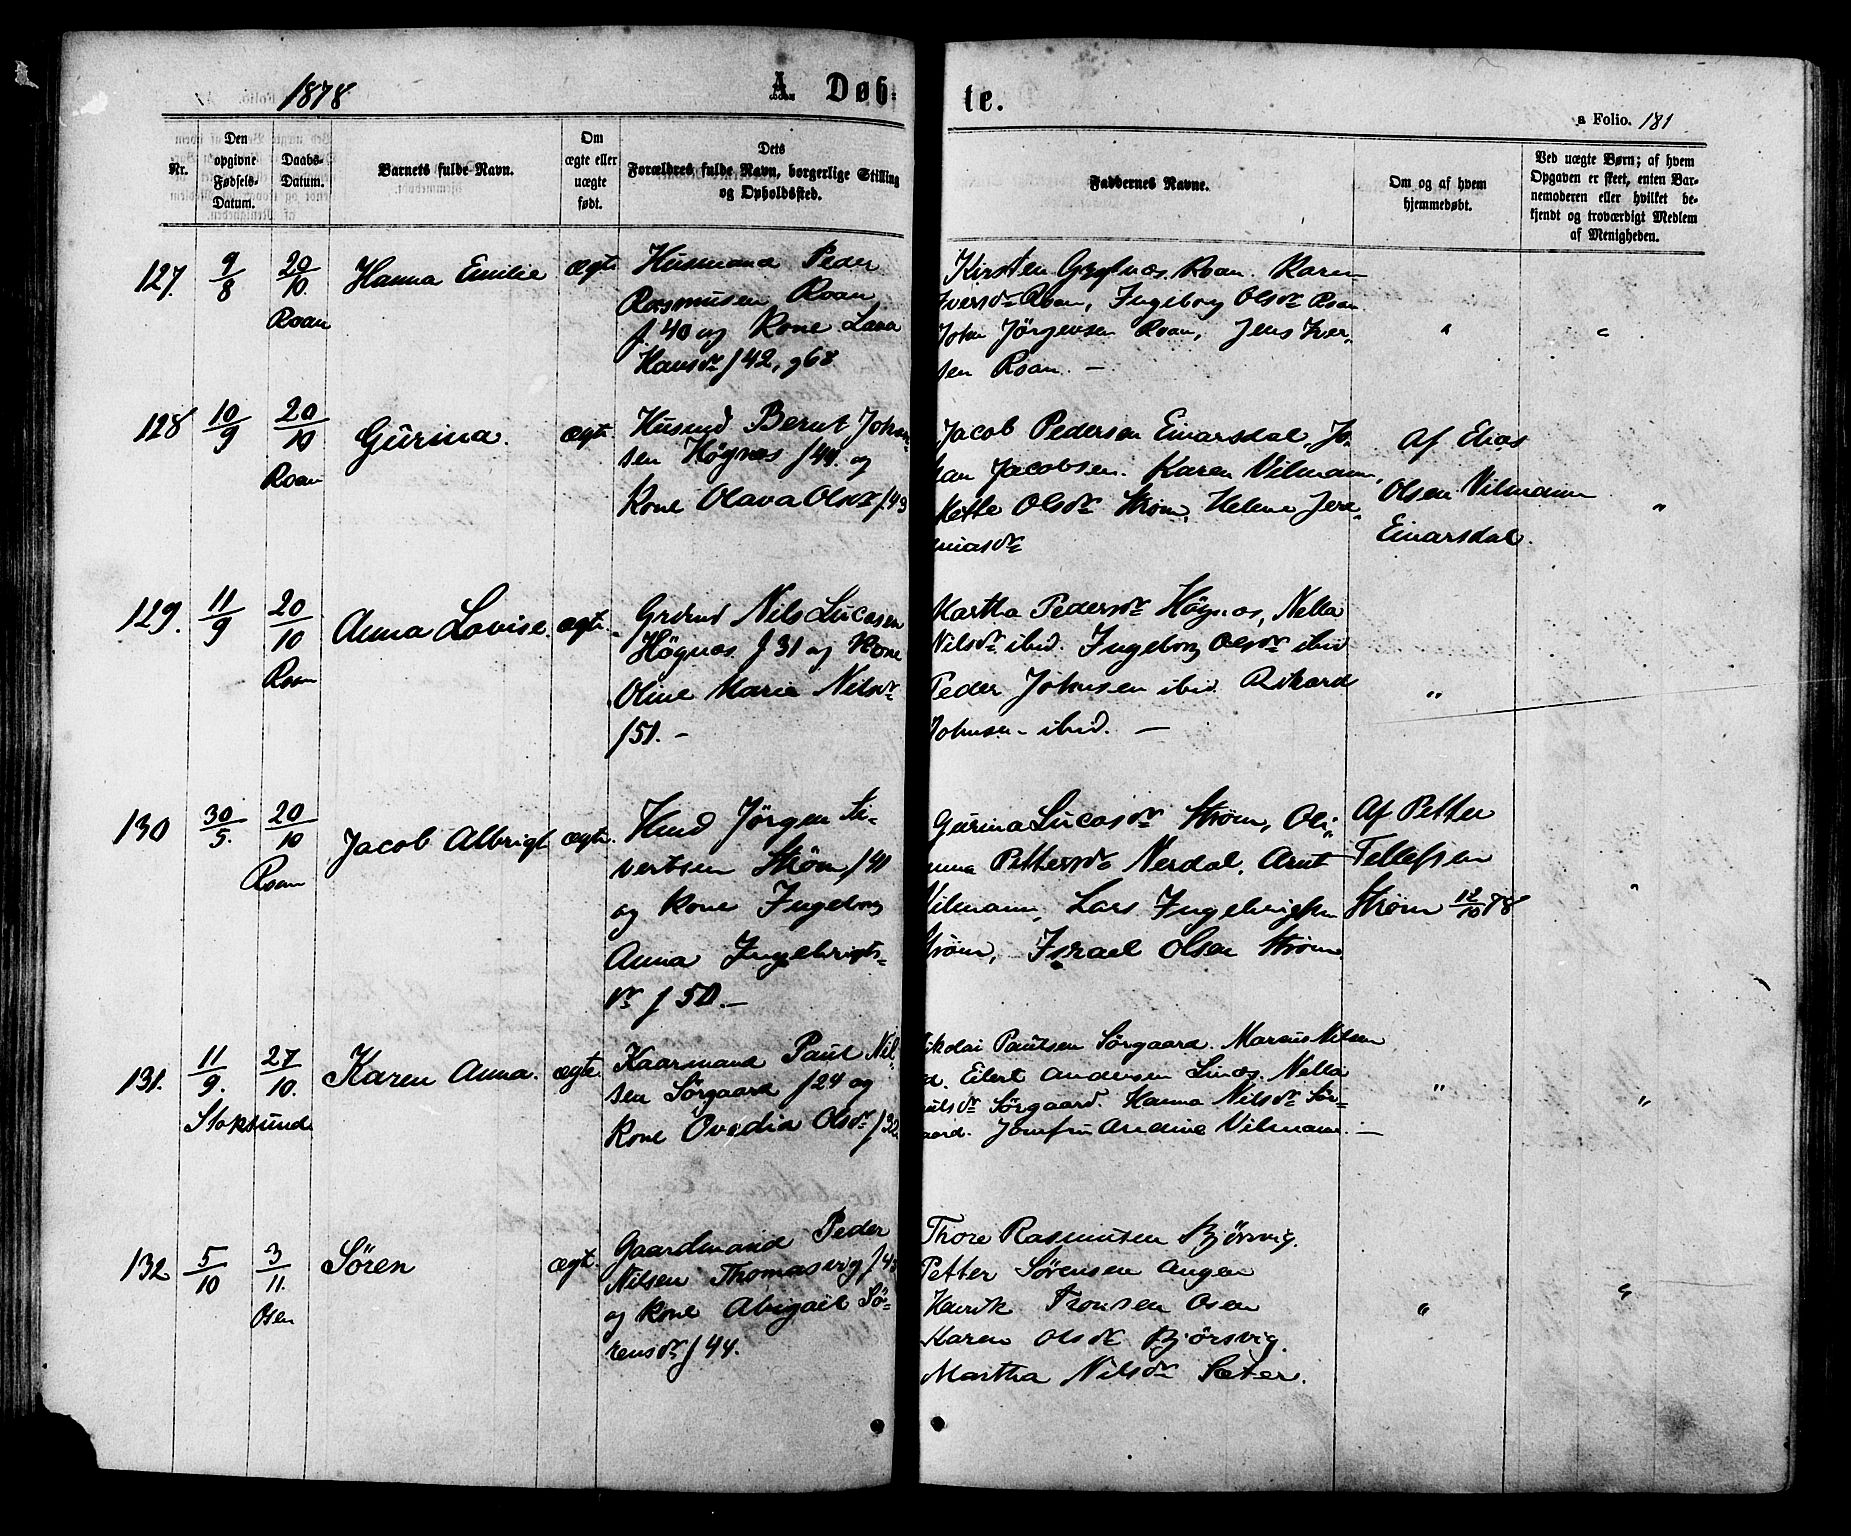 1878
A Døb-
te.
a Folio. 181
Nr.
Den opgivne Fødsels-Datum.
Daabs-Datum.
Barnets fulde Navn.
Om ægte eller uægte født.
Dets Forældres fulde Navn, borgerlige Stilling og Opholdssted.
Faddernes Navne.
Om og af hvem hjemmedøbt.
Ved uægte Børn; af hvem Opgaven er skeet, enten Barnemoderen eller hvilket bekjendt og troværdigt Medlem af Menigheden.
127. 9/8 20/10. Roan
Hanna Emilie
ægte
Husmand Peder
Rasmusen Roan
f 40 og Kone Lava
Hansdr f 42, g 68
Kirsten Roan. Karen
Iversdr Roan, Ingeborg Olsdr Roan
John Jörgensen Roan, Jens Iver-
sen Roan. —
" "
128 10/9 20/10 Roan
Gurina.
ægte
Husmd Bernt Johan-
sen Högnæs f 44. og
Kone Olava Olsdr f 43
Jacob Pedersen Einarsdal, Jo-
han Jacobsen. Karen Vilmann,
Mette Olsdr Strøm, Helena Jere-
miasdr
Af Elias
Olsen Vilmann
Einarsdal.
"
129. 11/9 20/10 Roan
Anna Lovise.
ægte.
Grdmd Nils Lucasen
Högnæs f 31 og Kone
Oline Marie Nilsdr
f 51. —
Martha Pedersdr Högnæs, Nella
Nilsdr ibid. Ingeborg Olsdr ibid
Peder Johnsen ibid. Rikard
Johnsen ibid. —
"
130 30/5. 20/10 Roan
Jacob Albrigt
ægte.
Hmd Jörgen Si-
vertsen Strøm f 41
og Kone Ingeborg
Anna Ingebrigts-
dr f 50. —
Gurina Lucasdr Strøm, Oli-
anna Pettersdr Nerdal. Arnt
Vilmann, Lars Ingebrigtsen
Strøm, Israel Olsen Strøm
Af Petter
Tellefsen
Strøm 12/10 78
"
131. 11/9. 27/10. Stoksund
Karen Anna.
ægte.
Kaarmand Paul Nil-
sen Sörgaard f 24 og
Kone Ovedia Olsdr f 32
Nikolai Paulsen Sörgaard. Marcus Nilsen
Eilert Andersen Linæs. Nella
Paulsdr Sörgaard. Hanna Nilsdr Sör-
gaard. Jomfru Andine Vilmann. —
" "
132 5/10 3/11. Osen
Sören
ægte.
Gaardmand Peder
Nilsen Thomasvig f 4
og Kone Abigael Sö-
rensdr f 44.
Thore Rasmusen Bjørsvig.
Petter Sörensen Angen
Henrik Tronsen Osen
Karen Olsdr Bjørsvig.
Martha Nilsdr Sæter.
" "